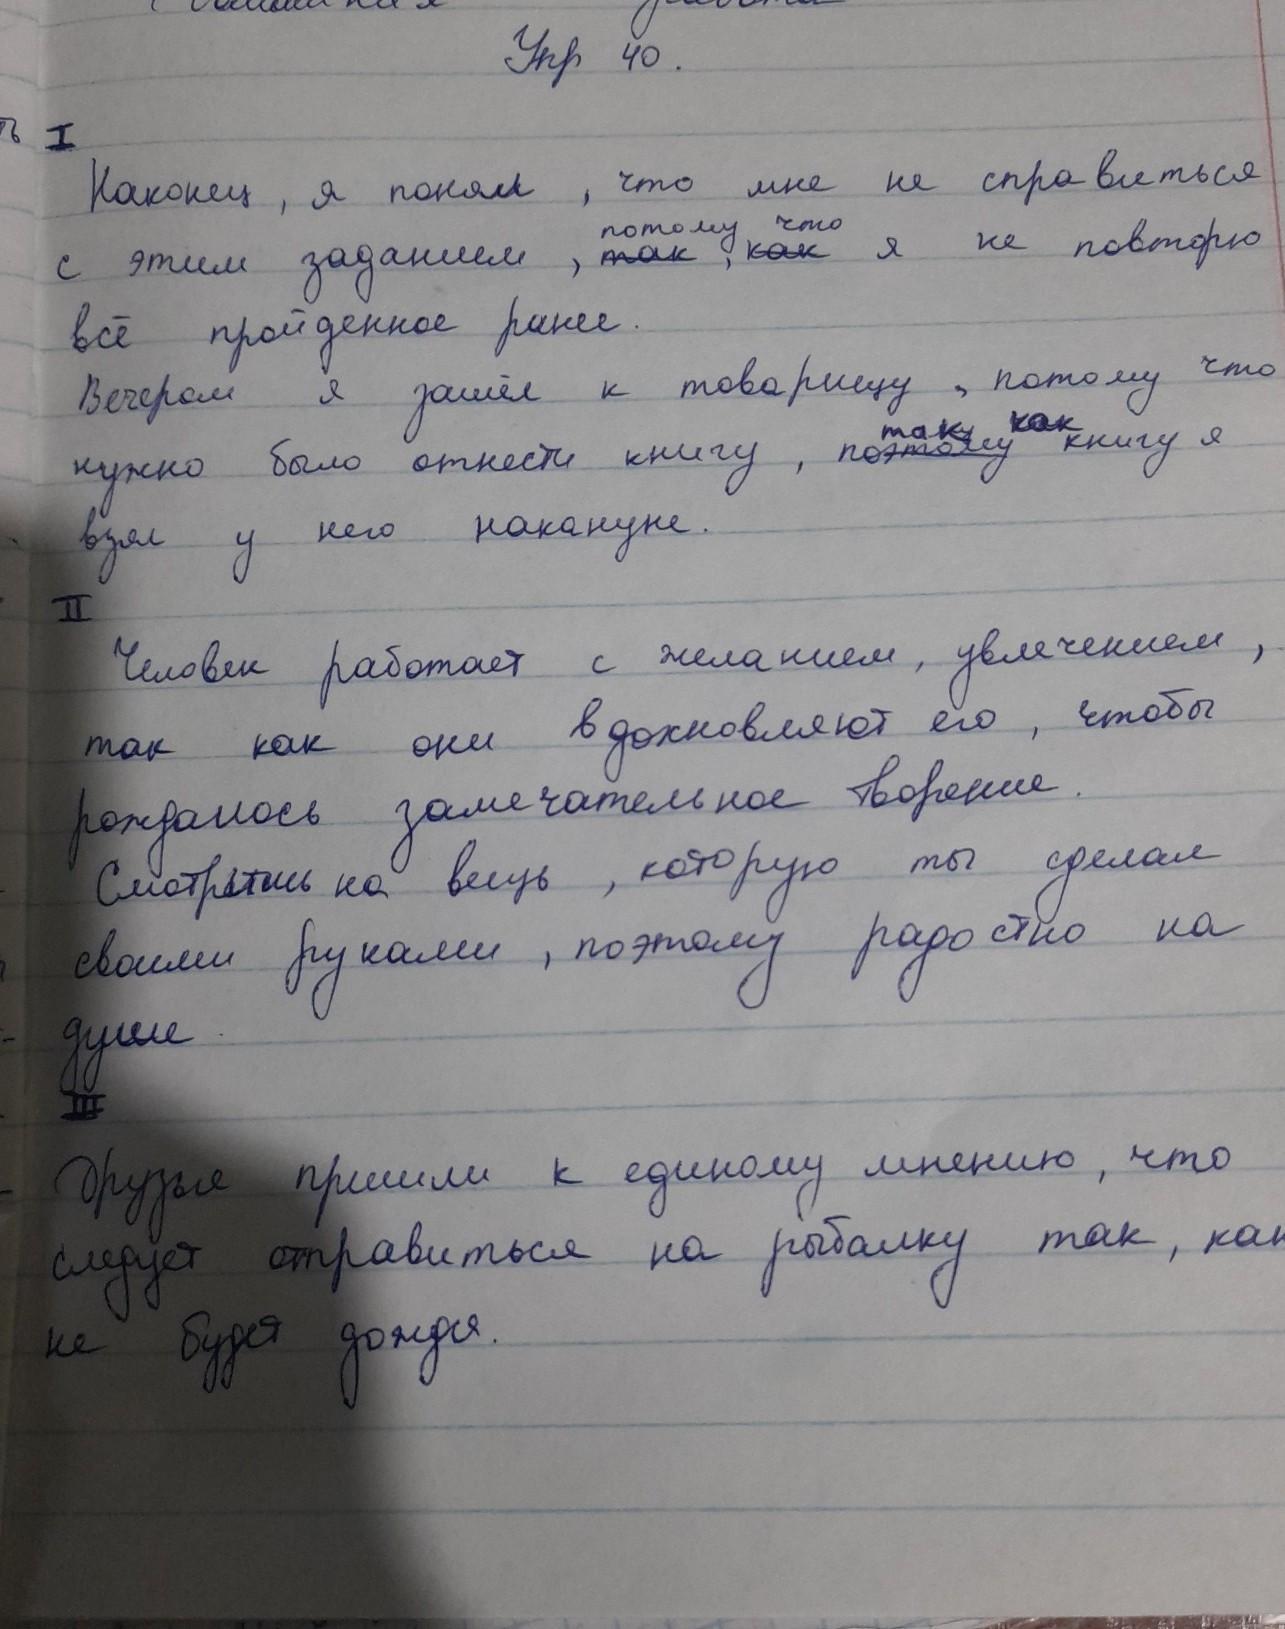 работа
Упр 40.
I
Наконец, я понял, что мне не справиться
потому что
с этим заданием, так, как я не повторю
всё пройденное ранее.
Вечером я зашёл к товарищу, потому что
так как
нужно было отнести книгу, поэтому книгу я
взял у него накануне.
II
Человек работает с желанием, увлечением,
так как они вдохновляют его, чтобы
рождалось замечательное творение.
на вещь, которую ты сделал
своими руками, поэтому радостно на
душе.
III
Друзья пришли к единому мнению, что
следует отправиться на рыбалку так, как
не будет дождя.